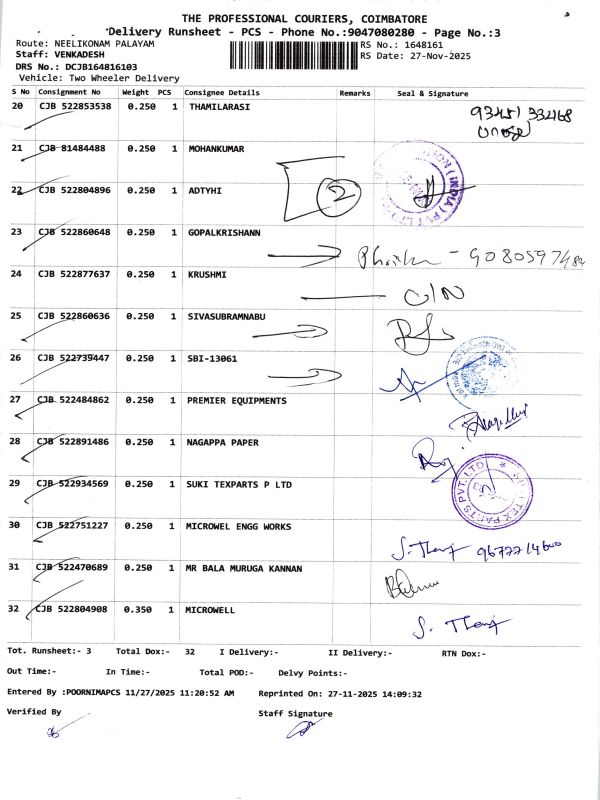 THE PROFESSIONAL COURIERS, COIMBATORE
Delivery Runsheet - PCS - Phone No.:9047080280 - Page No.:3
Route: NEELIKONAM PALAYAM
RS No.: 1648161
Staff: VENKADESH
RS Date: 27-Nov-2025
DRS No.: DCJB164816103
Vehicle: Two Wheeler Delivery
S No Consignment No Weight PCS Consignee Details Remarks Seal & Signature
20 CJB 522853538 0.250 1 THAMILARASI
21 CJB 81484488 0.250 1 MOHANKUMAR
22 CJB 522804896 0.250 1 ADTYHI 2
23 CJB 522860648 0.250 1 GOPALKRISHANN
24 CJB 522877637 0.250 1 KRUSHMI
O/N
25 CJB 522860636 0.250 1 SIVASUBRAMNABU
26 CJB 522739447 0.250 1 SBI-13061
27 CJB 522484862 0.250 1 PREMIER EQUIPMENTS
28 CJB 522891486 0.250 1 NAGAPPA PAPER
29 CJB 522934569 0.250 1 SUKI TEXPARTS P LTD
30 CJB 522751227 0.250 1 MICROWEL ENGG WORKS
31 CJB 522470689 0.250 1 MR BALA MURUGA KANNAN
32 CJB 522804908 0.350 1 MICROWELL
Tot. Runsheet:- 3 Total Dox:- 32 I Delivery:- II Delivery:- RTN Dox:-
Out Time:- In Time:- Total POD:- Delvy Points:-
Entered By :POORNIMAPCS 11/27/2025 11:20:52 AM Reprinted On: 27-11-2025 14:09:32
Verified By Staff Signature